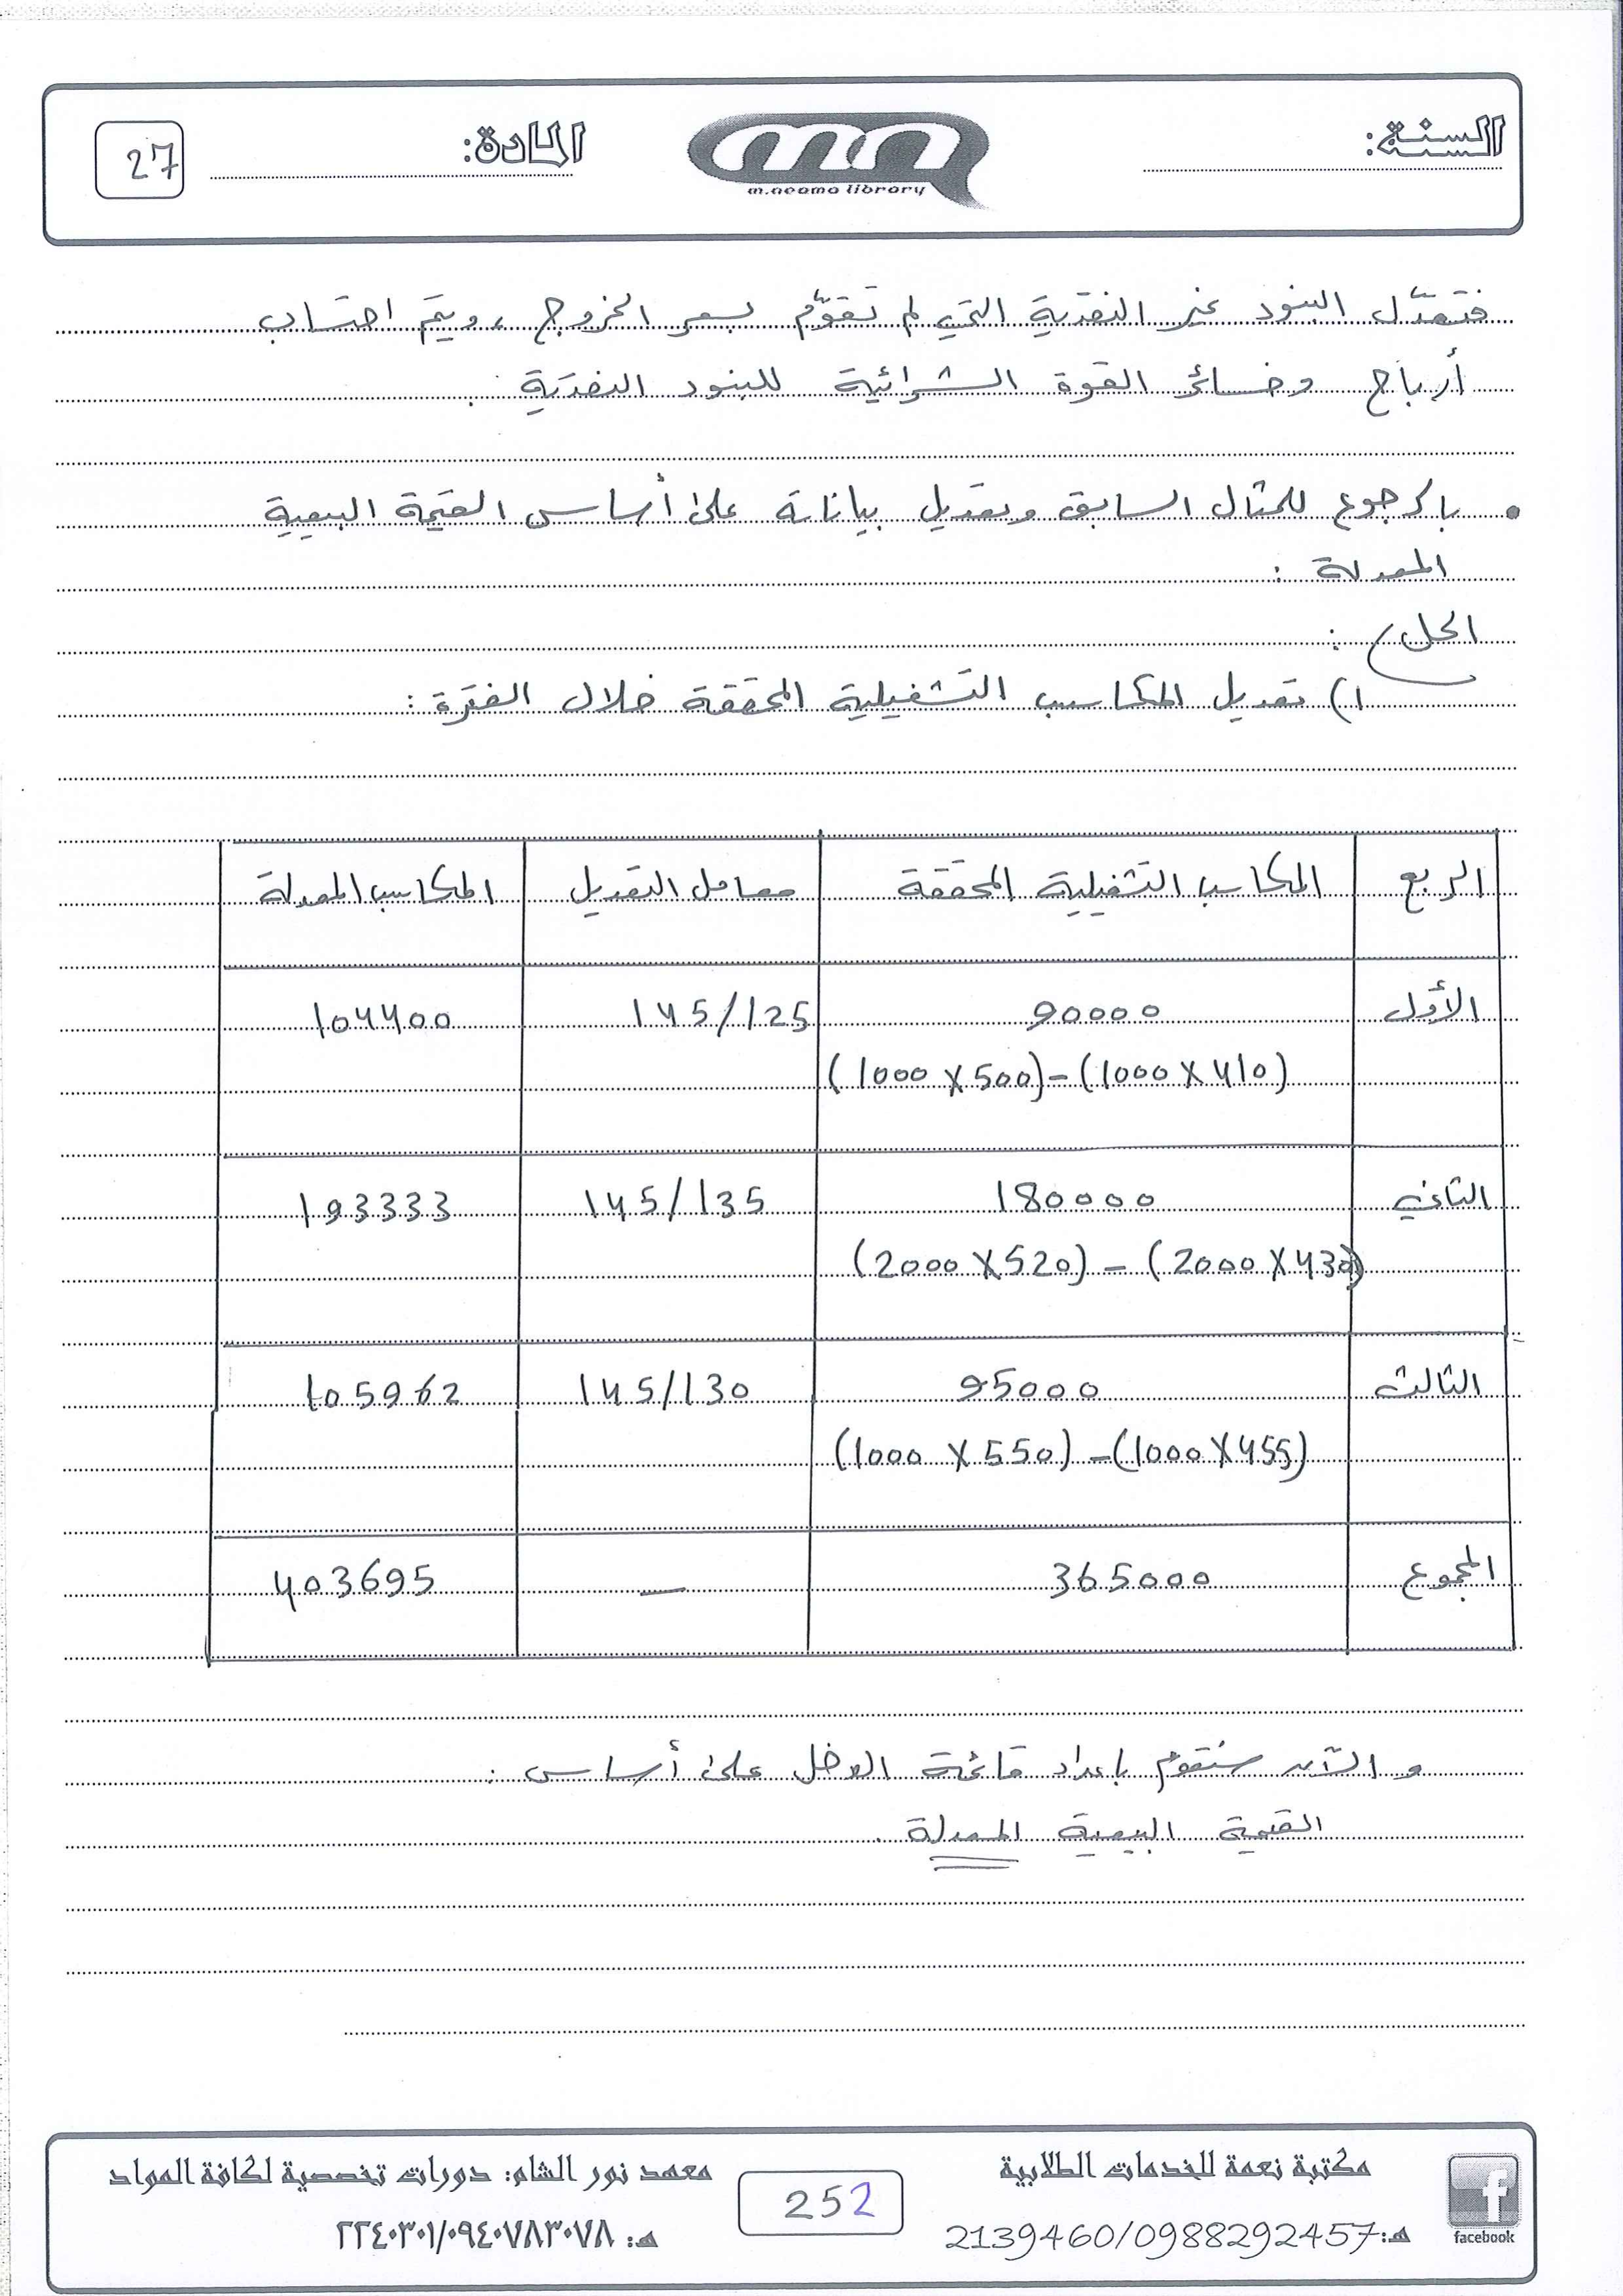 السنة:
m.neama library
المادة:
27
فتعدّل البنود غير النقدية التي لم تقوّم بسعر الخروج ، ويتم احتساب
أرباح وخسائر القوة الشرائية للبنود النقدية .
• بالرجوع للمثال السابق وتعديل بياناته على أساس القيمة البيعية
المعدلة :
الحل :
1) تعديل المكاسب التشغيلية المحققة خلال الفترة :
الربع المكاسب التشغيلية المحققة معامل التعديل المكاسب المعدلة
الأول 90000 145/125 104400
(1000 X 500) - (1000 X 410)
الثاني 180000 145/135 193333
(2000 X 520) - (2000 X 430)
الثالث 95000 145/130 105962
(1000 X 550) - (1000 X 455)
المجموع 365000 — 403695
و الآن سنقوم بإعداد قائمة الدخل على أساس :
القيمة البيعية المعدلة .
facebook
مكتبة نعمة للخدمات الطلابية
هـ: 2139460/0988292457
252
معهد نور الشام: دورات تخصصية لكافة المواد
هـ: ٢٢٤٠٣٠١/٠٩٤٠٧٨٣٠٧٨